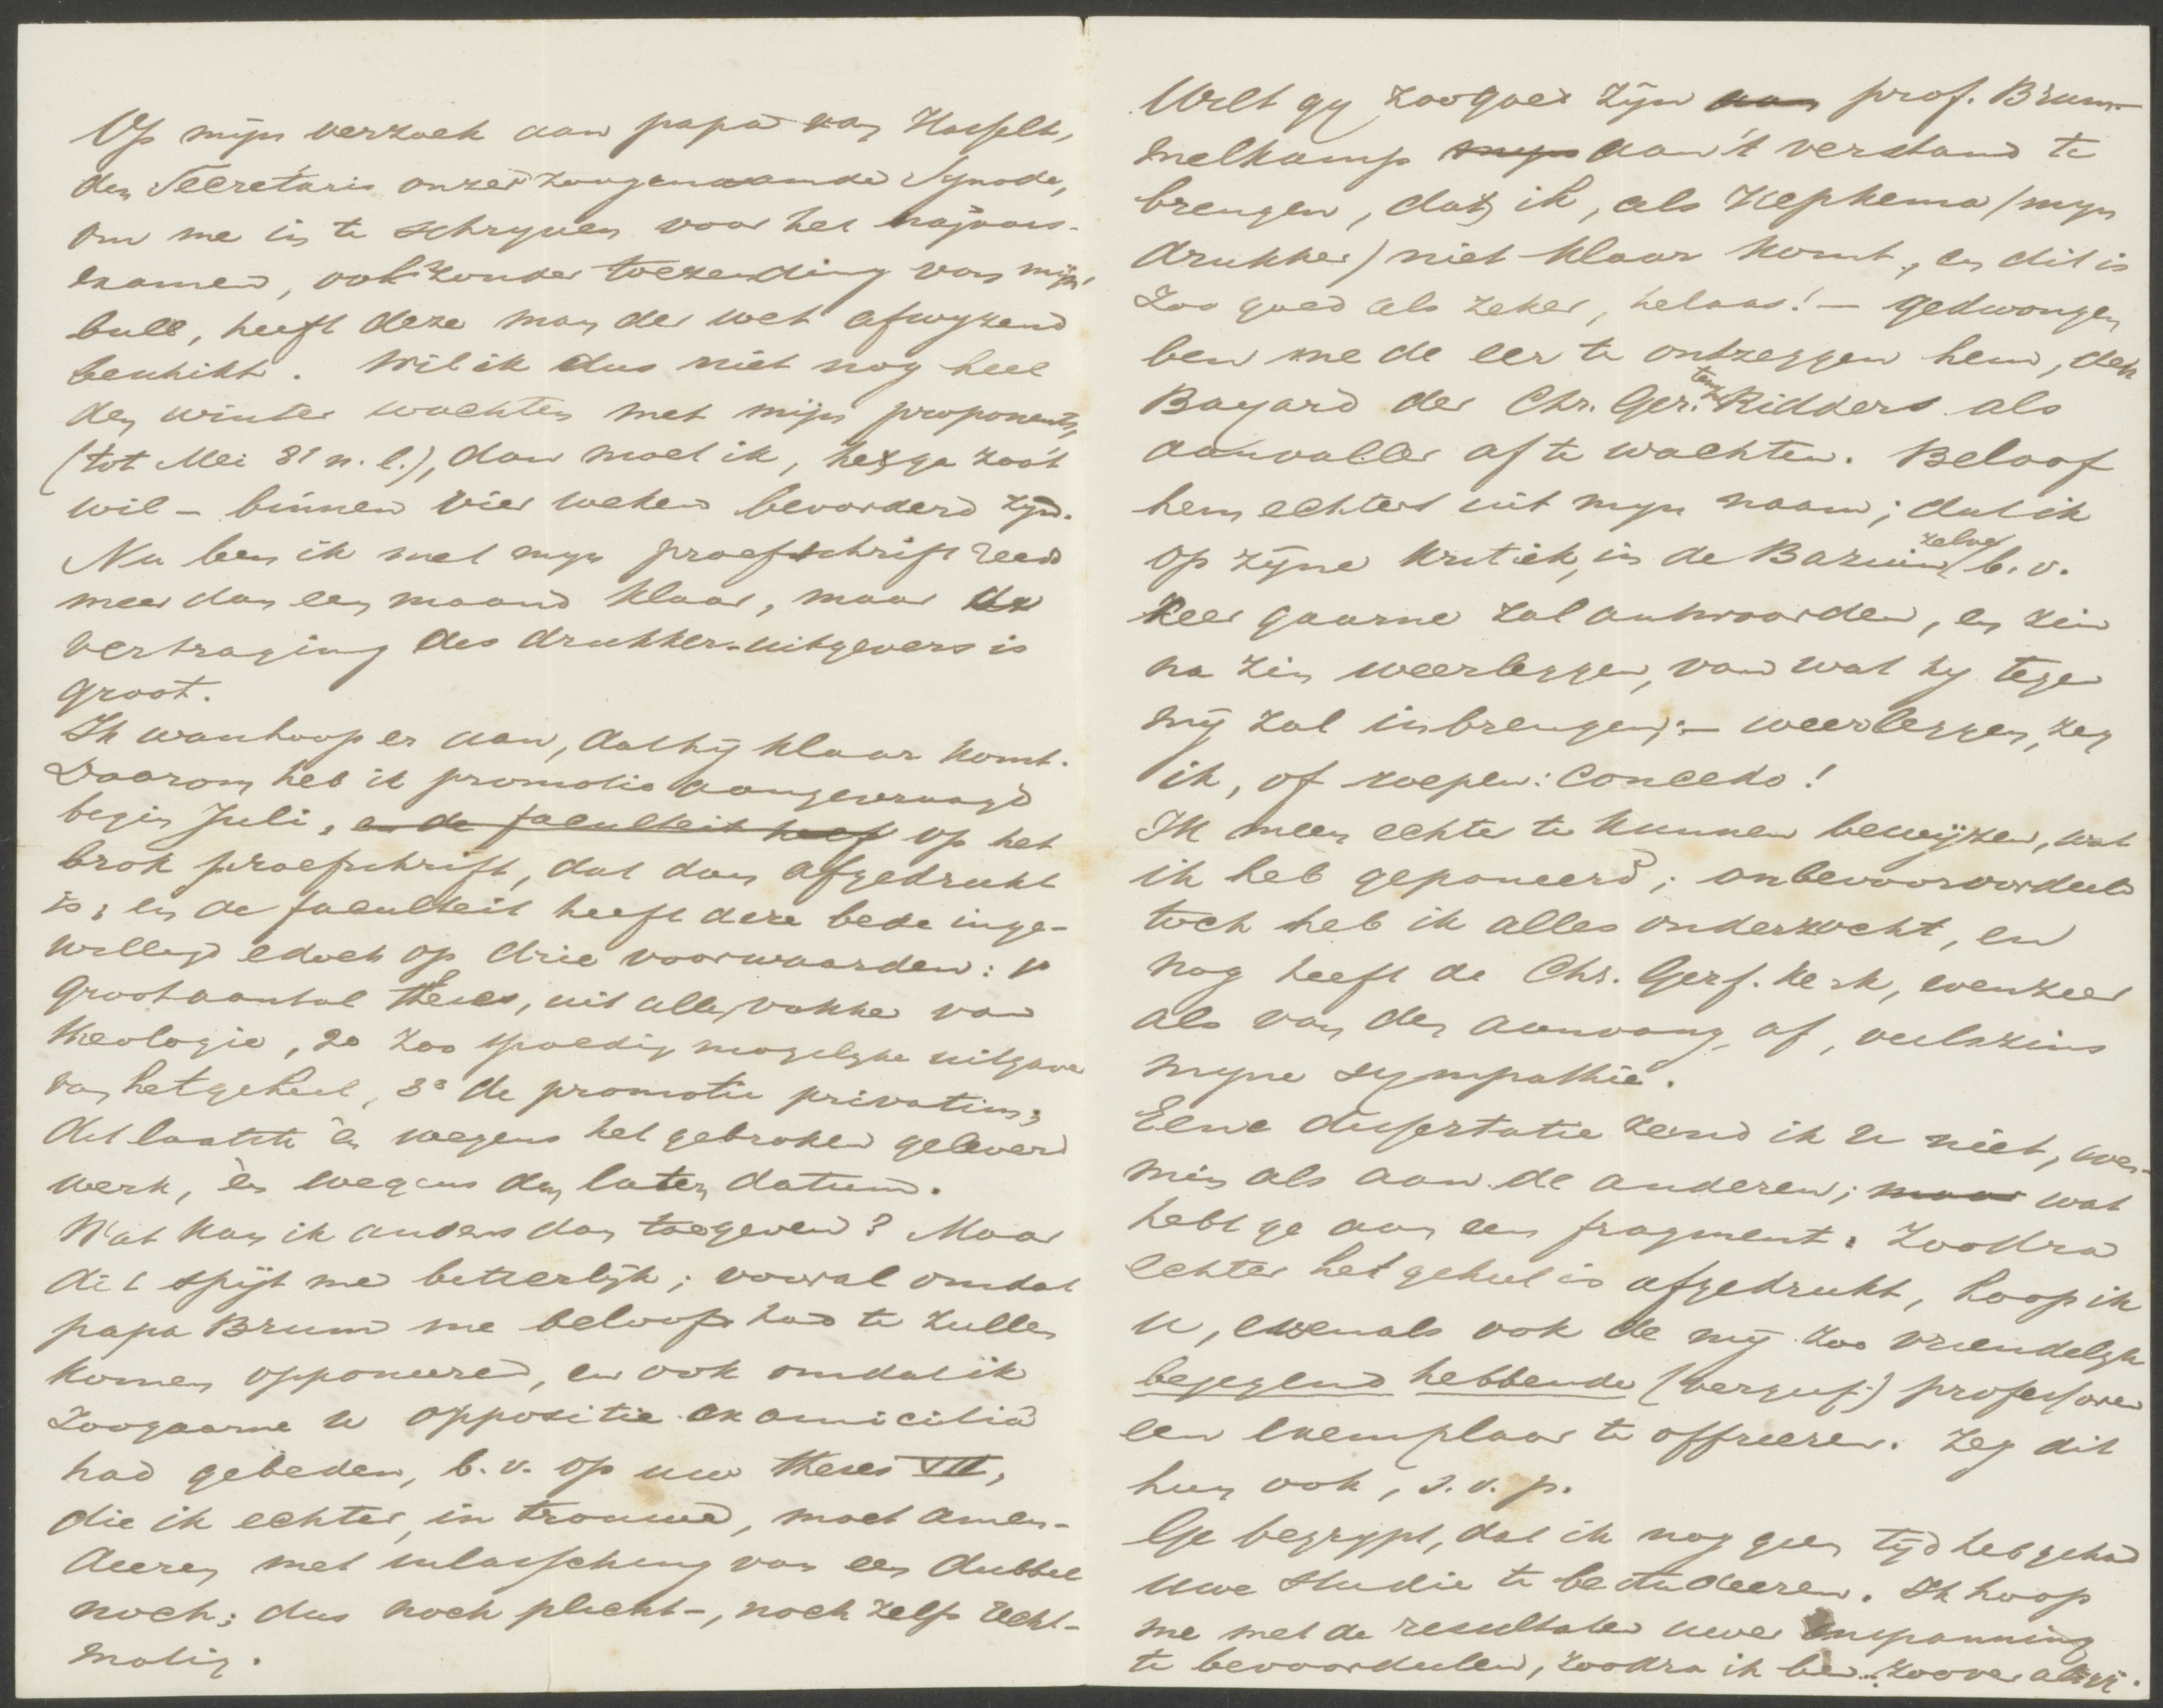 Op mijn verzoek aan papa van Hasselt,
den Secretaris onzer zoogenaamde Synode,
om me in te schryven voor het najaars-
examen, ook zonder toezending van mijn
bull, heeft deze man der wet afwyzend
beschikt. Wil ik dus niet nog heel
den winter wachten met mijn proponents,
(tot Mei 81 n. l.), dan moet ik, het ga zoo't
wil - binnen vier weken bevorderd zyn.
Nu ben ik met myn proefschrift reeds
meer dan een maand klaar, maar de
vertraging des drukker-uitgevers is
groot.
Ik wanhoop er aan, dat hij klaar komt.
Daarom heb ik promotie aangevraagd
begin Juli, en de faculteit heef op het
brok proefschrift, dat dan afgedrukt
is; en de faculteit heeft deze bede inge-
willigd edoch op drie voorwaarden: 1o
groot aantal theses, uit alle vakken van
theologie, 2o zoo spoedig mogelyke uitgave
van het geheel, 3o de promotie privatim;
dit laatste èn wegens het gebroken geleverd
werk, èn wegens den laten datum.
Wat kan ik anders dan toegeven? Maar
dit spijt me bitterlijk; vooral omdat
papa Brum me beloofd had te zullen
komen opponeeren, en ook omdat ik
zoogaarne u oppositie ex amicitia
had gebeden, b.v. op uw theses VII,
die ik echter, in trouwe, moet amen-
deeren met inlassching van een dubbel
noch; dus noch plicht-, noch zelfs recht-
matig.
Wilt gy zoo goed zijn aan prof. Brum-
melkamp myn aan't verstand te
brengen, dat ik, als Hepkema (myn
drukker) niet klaar komt, en dit is
zoo goed als zeker, helaas! - gedwongen
ben me de eer te ontzeggen hem, den
Bayard der Chr. Ger. Ridders als
aanvaller af te wachten. Beloof
hem echter uit myn naam; dat ik
op zijne kritiek, in de Bazuin zelve b.v.
zeer gaarne zal antwoorden, en zin
na zin weerleggen, van wat hy tegen
mij zal inbrengen; - weerleggen, zeg
ik, of roepen: Concedo!
Ik meen echter te kunnen bewijzen, wat
ik heb geponeerd; onbevooroordeeld
toch heb ik alles onderzocht, en
nog heeft de Chr. Geref. Kerk, evenzeer
als van den aanvang af, veelszins
myne sympathie.
Eene dissertatie zend ik u niet, even-
min als aan de anderen; maar wat
hebt ge aan een fragment. Zoodra
echter het geheel is afgedrukt, hoop ik
u, evenals ook de mij zoo vriendelyk
bejegend hebbende (vergeef!) professoren
een exemplaar te offreeren. Zeg dit
hun ook, s.v.p.
Ge begrypt, dat ik nog geen tijd heb gehad
uwe studie te bestudeeren. Ik hoop
me met de resultaten uwer inspanning
te bevoordeelen, zoodra ik ben... zoover als gij.